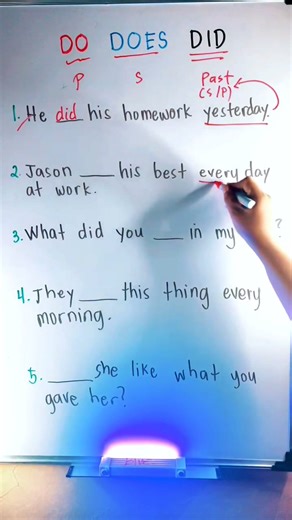 DO DOES DID
P S Past
(S/P)
1. He did his homework yesterday.
2. Jason ____ his best every day
at work.
3. What did you ___ in my ?
4. They ____ this thing every
morning.
5. ____ she like what you
gave her?